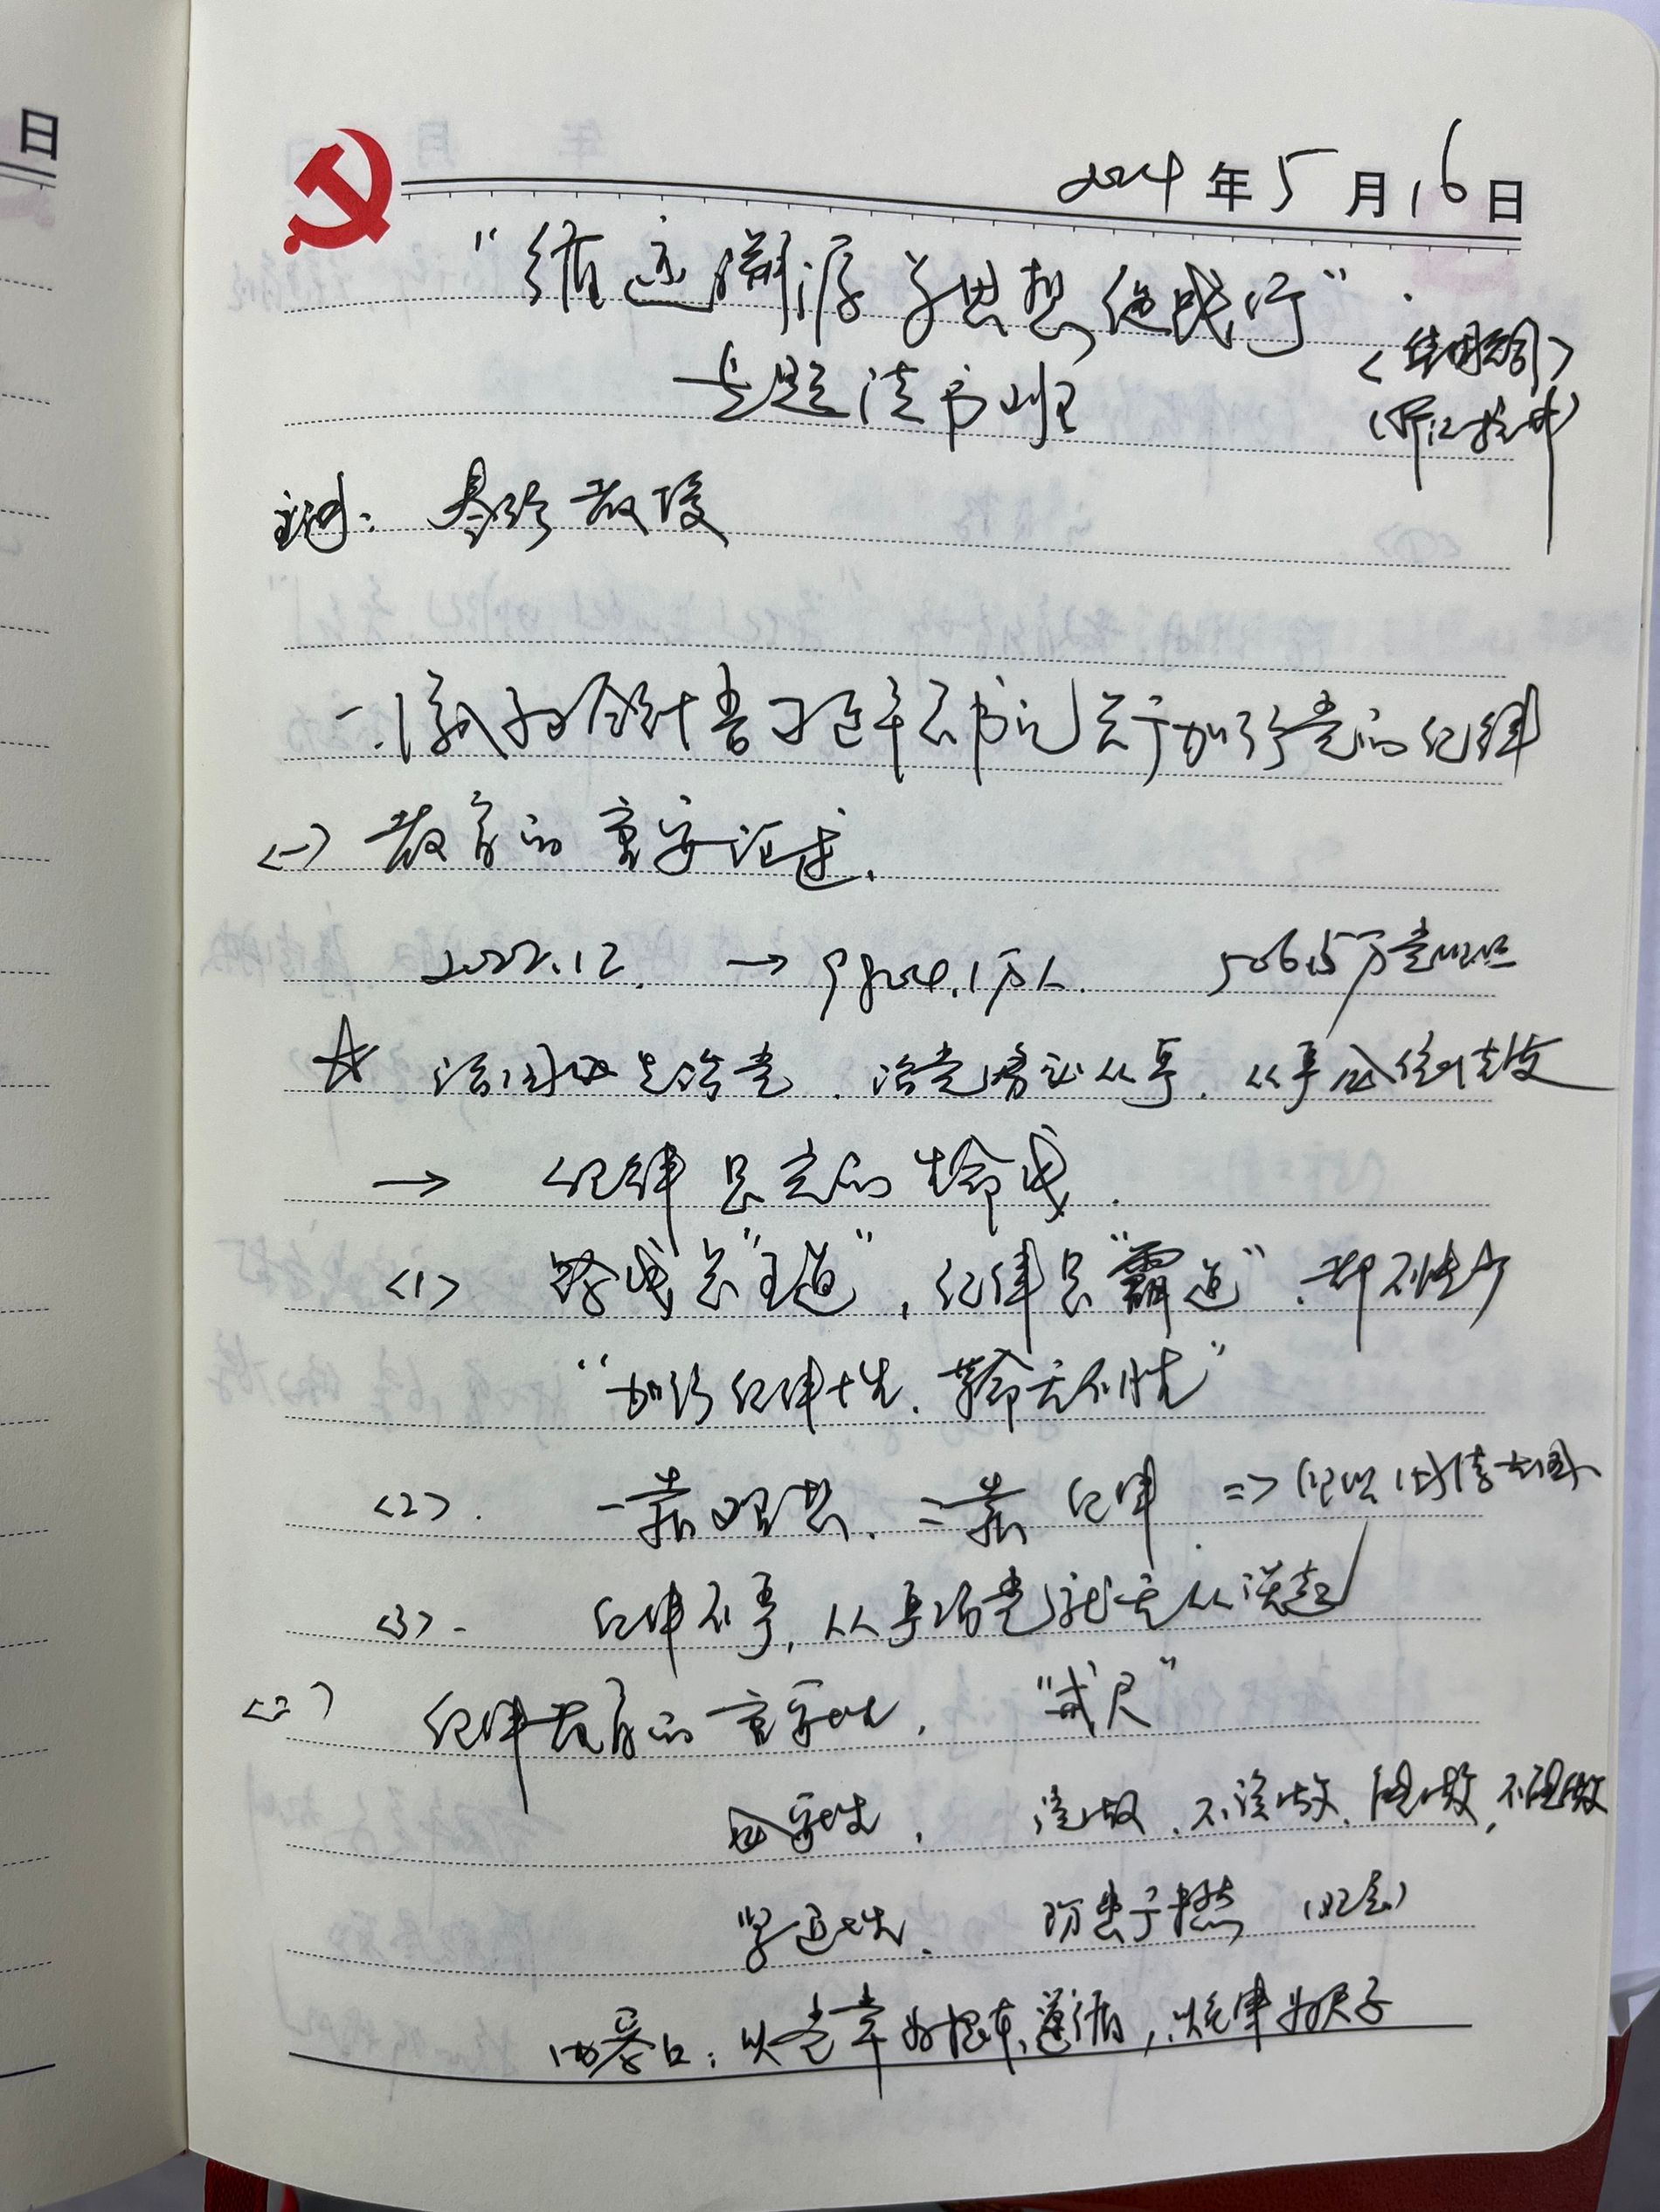 日
2024年5月16日
“循迹溯源学思想促践行”
专题读书班
主讲: 教授
一.深刻领会习近平总书记关于加强党的纪律
<一> 教育的重要论述.
2022.12. → 9804.1万人. 506.5万党组织
☆ 治国必先治党. 治党务必从严. 从严必依法度
→ 纪律是党的生命线.
<1> 路线是“王道”, 纪律是“霸道”. 都不可少
“加强纪律性. 革命无不胜”
<2>. 一靠理想. 二靠纪律 =>
<3>. 纪律不严, 从严治党就无从谈起
<二> 纪律教育的重要性. “戒尺”
必要性. 该做. 不该做. 能做, 不能做
紧迫性. 防患于未然
: 以党章为根本遵循, 以纪律为尺子